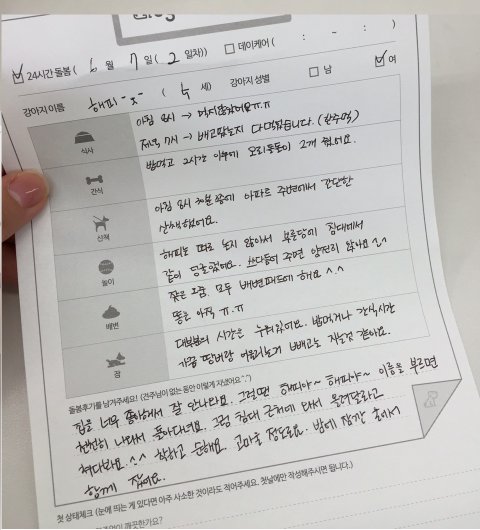 ☑ 24시간 돌봄 ( 6 월 7 일 ( 2 일차)) ☐ 데이케어 ( : ~ : )
강아지 이름 해피 ( 4 세) 강아지 성별 ☐ 남 ☑ 여
아침 8시 → 먹지않았어요ㅠ.ㅠ
식사 저녁 7시 → 배고팠는지 다먹었습니다. (한수염)
밥먹고 2시간 이후에 오리동동이 2개 줬어요.
간식
아침 8시 30분 쯤에 아파트 주변에서 간단한
산책 산책했어요.
해피는 따로 놀지 않아서 부른담에 침대에서
놀이 같이 뒹굴었어요. 쓰다듬어 주면 얌전히 앉아요 ^^
잦은 소변, 모두 배변패드에 해요 ^.^
배변 똥은 아직 ㅠ.ㅠ
대부분의 시간은 누워있어요. 밥먹거나 간식시간
잠 가끔 땅버랑 어울리는거 빼고는 자는것 같아요.
돌봄후기를 남겨주세요! (견주님이 없는 동안 이렇게 지냈어요^^)
집을 너무 좋아해서 잘 안나와요. 그럴땐 해피야~ 해피야~ 이름을 부르면
천천히 나와서 돌아다녀요. 그럼 침대 근처에 와서 올려달라고
쳐다봐요.^^ 착하고 순해요. 고마울 정도로요. 밤에 잠깐 홀에서
함께 잤어요.
첫 상태체크 (눈에 띄는 게 있다면 아주 사소한 것이라도 적어주세요. 첫날에만 작성해주시면 됩니다.)
깨끗한가요?